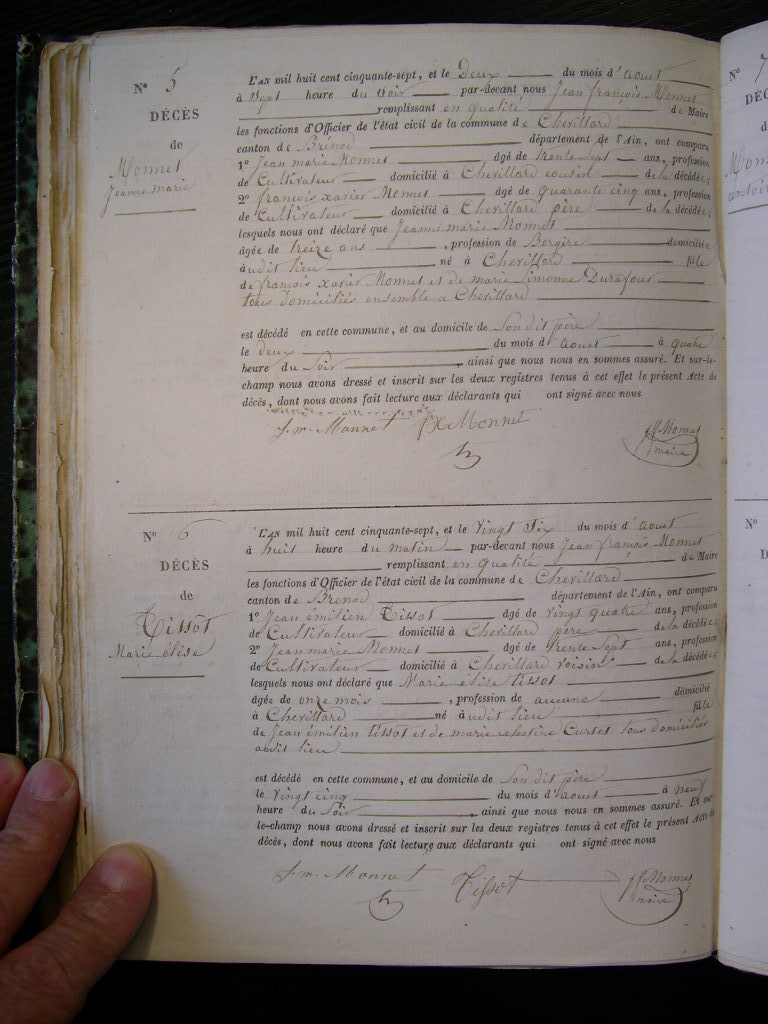 N° 5
DÉCÈS
de
Monnet
Jeanne marie
L'AN mil huit cent cinquante-sept, et le Deux du mois d'aoust
à Sept heure du Soir par-devant nous Jean françois Monnet
remplissant en qualité de Maire
les fonctions d'Officier de l'état civil de la commune de Chevillard
canton de Brénod département de l'Ain, ont comparu
1° Jean marie Monnet âgé de trente Sept ans, profession
de Cultivateur domicilié à Chevillard cousin de la décédée;
2° françois xavier Monnet âgé de quarante cinq ans, profession
de Cultivateur domicilié à Chevillard père de la décédée;
lesquels nous ont déclaré que Jeanne marie Monnet
âgée de treize ans, profession de Bergère domiciliée
audit lieu né à Chevillard fille
de françois xavier Monnet et de marie Simonne Durafour
tous domiciliés ensemble a Chevillard
est décédé en cette commune, et au domicile de Son dit père
le deux du mois d'aoust à quatre
heure du Soir, ainsi que nous nous en sommes assuré. Et sur-le-
champ nous avons dressé et inscrit sur les deux registres tenus à cet effet le présent Acte de
décès, dont nous avons fait lecture aux déclarants qui ont signé avec nous
J. m. Monnet fx Monnet
jf Monnet
maire
N° 6
DÉCÈS
de
Tissot
Marie élise
L'AN mil huit cent cinquante-sept, et le Vingt Six du mois d'aoust
à huit heure du matin par-devant nous Jean françois Monnet
remplissant en qualité de Maire
les fonctions d'Officier de l'état civil de la commune de Chevillard
canton de Brenod département de l'Ain, ont comparu
1° Jean émilien Tissot âgé de vingt quatre ans, profession
de Cultivateur domicilié à Chevillard père de la décédée;
2° Jean marie Monnet âgé de trente Sept ans, profession
de Cultivateur domicilié à Chevillard voisin de la décédée;
lesquels nous ont déclaré que Marie elise tissot
âgée de onze mois, profession de aucune domicilié
à Chevillard né audit lieu fille
de Jean émilien tissot et de marie celestine Curtet tous domiciliés
audit lieu
est décédé en cette commune, et au domicile de Son dit père
le Vingt cinq du mois d'aoust à neuf
heure du Soir, ainsi que nous nous en sommes assuré. Et sur
le-champ nous avons dressé et inscrit sur les deux registres tenus à cet effet le présent Acte de
décès, dont nous avons fait lecture aux déclarants qui ont signé avec nous
J. m. Monnet Tissot jf Monnet
maire
N° 7